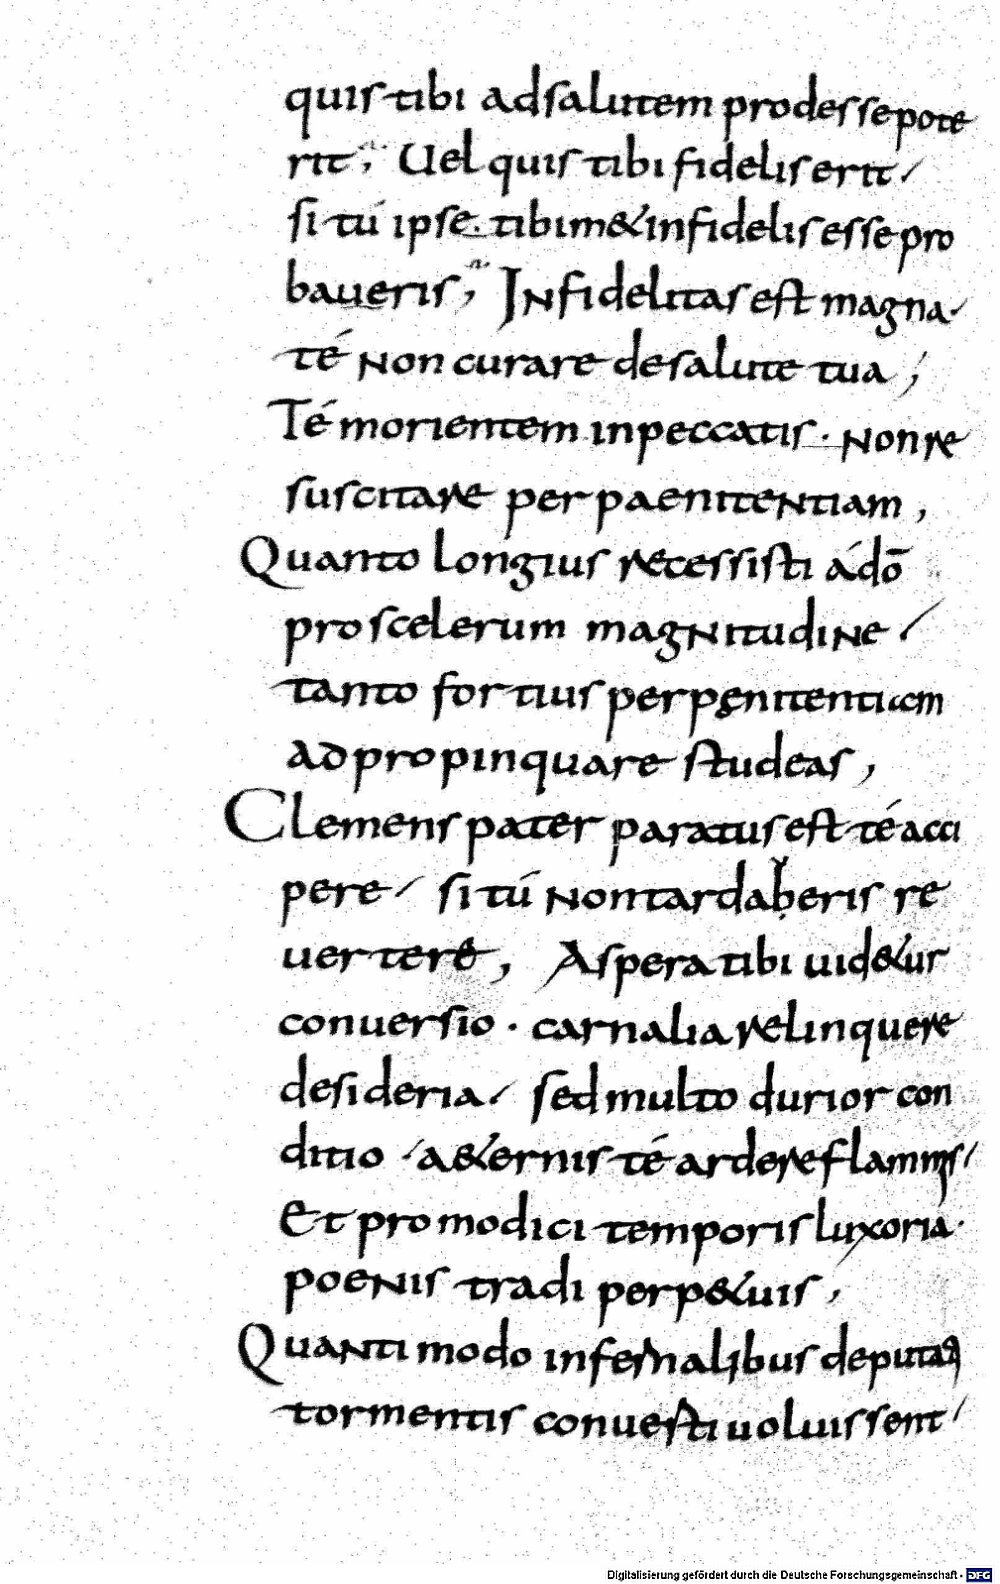 quis tibi ad salutem prodesse pote
rit; Uel quis tibi fidelis erit/
si tú ipse. tibim& infidelis esse pro
baueris; Infidelitas est magna·
té non curare de salute tua;
Té morientem in peccatis. non re
suscitare per paenitentiam,
Quanto longius recessisti á dō
pro scelerum magnitudine/
tanto fortius per pęnitentiam
adpropinquare studeas,
Clemens pater paratus est té acci
pere/ si tú non tardaberis re
uertere, Aspera tibi uid&ur
conuersio. carnalia relinquere
desideria/ sed multo durior con
ditio / a&ernis té ardere flammis/
Et pro modici temporis luxoria·
poenis tradi perp&uis,
Quanti modo infernalibus deputati
tormentis conuesti uoluissent/
Digitalisierung gefördert durch die Deutsche Forschungsgemeinschaft - DFG